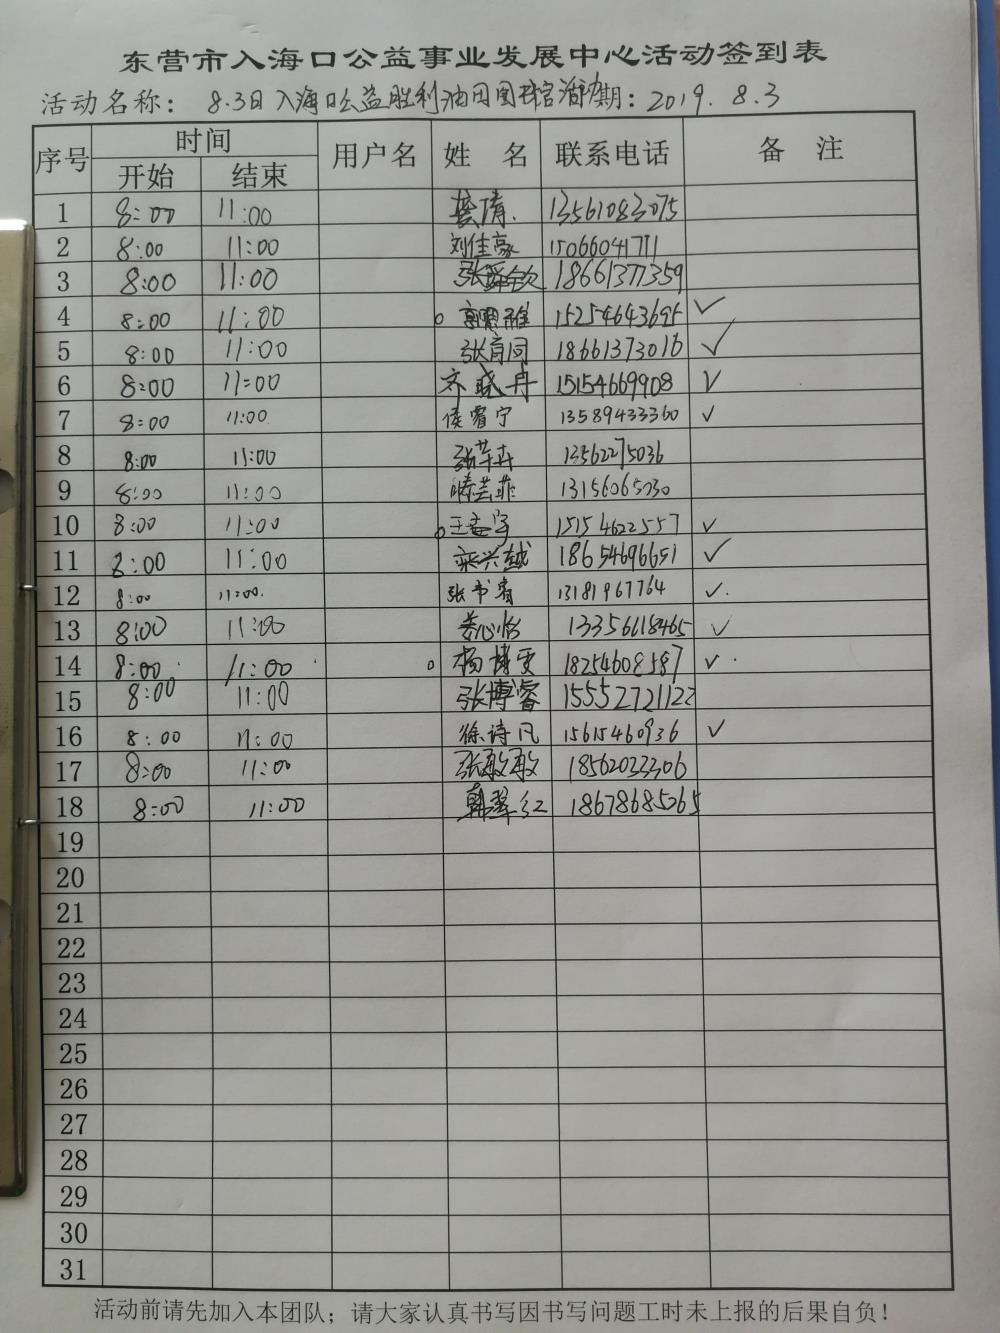 东营市入海口公益事业发展中心活动签到表
活动名称：8.3日入海口公益胜利油田图书馆活动 日期：2019.8.3
序号 时间 用户名 姓 名 联系电话 备 注
开始 结束
1 8:00 11:00 龚倩 13561083075
2 8:00 11:00 刘佳豪 15066041711
3 8:00 11:00 张舜钦 18661377359
4 8:00 11:00 15254643695 ✓
5 8:00 11:00 张育同 18661373016 ✓
6 8:00 11:00 齐晓冉 15154669908 ✓
7 8:00 11:00 侯睿宁 13589433360 ✓
8 8:00 11:00 张芊卉 13562275036
9 8:00 11:00 13156065030
10 8:00 11:00 15154622557 ✓
11 8:00 11:00 18654696651 ✓
12 8:00 11:00 张书睿 13181967764 ✓
13 8:00 11:00 娄心怡 13356618465 ✓
14 8:00 11:00 杨博雯 18254608587 ✓
15 8:00 11:00 张博睿 15552721122
16 8:00 11:00 徐诗凡 15615460936 ✓
17 8:00 11:00 张敏敏 18562033306
18 8:00 11:00 韩翠红 18678685065
19
20
21
22
23
24
25
26
27
28
29
30
31
活动前请先加入本团队；请大家认真书写因书写问题工时未上报的后果自负！